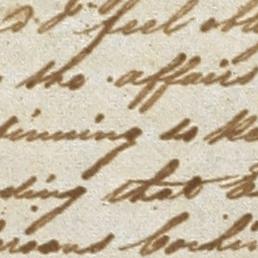 I feel obl
the affairs
inning to
ding that
ersons